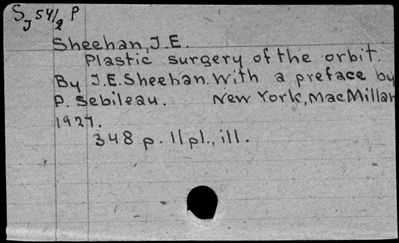 SJ 54/2 P
Sheehan, J.E.
Plastic surgery of the orbit.
By J.E. Sheehan. With a preface by
P. Sebileau. New York, MacMillan
1927.
348 p. 11 pl., ill.